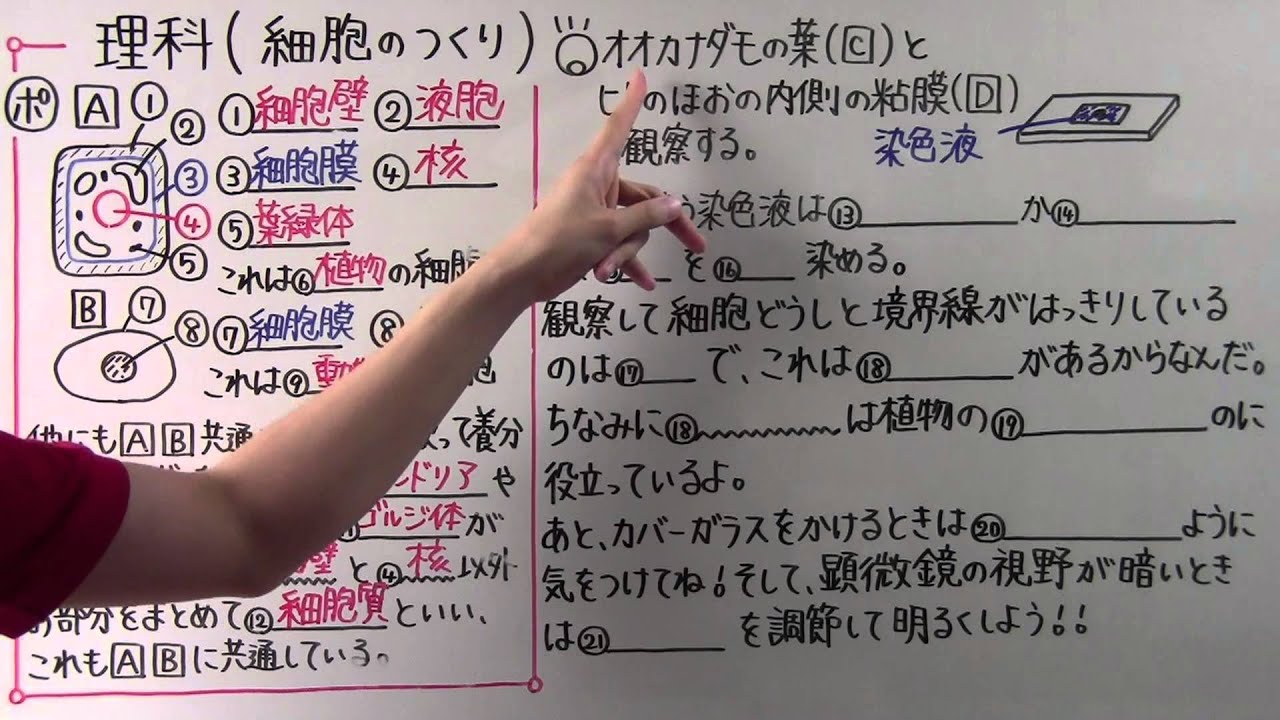 理科(細胞のつくり)
ポ A ① ①細胞壁 ②液胞
②
③ ③細胞膜 ④核
④ ⑤葉緑体
⑤ これは⑥植物の細胞
B ⑦ ⑦細胞膜 ⑧
⑧ これは⑨動
他にもAB共通 って養分
ンドリア や
ゴルジ体が
壁と④核以外
部分をまとめて⑫細胞質といい、
これもABに共通している。
オオカナダモの葉(C)と
ヒトのほおの内側の粘膜(D)
観察する。 染色液
染色液は⑬ か⑭
を⑯ 染める。
観察して細胞どうしと境界線がはっきりしている
のは⑰ で、これは⑱ があるからなんだ。
ちなみに⑱ は植物の⑲ のに
役立っているよ。
あと、カバーガラスをかけるときは⑳ ように
気をつけてね!そして、顕微鏡の視野が暗いとき
は㉑ を調節して明るくしよう!!